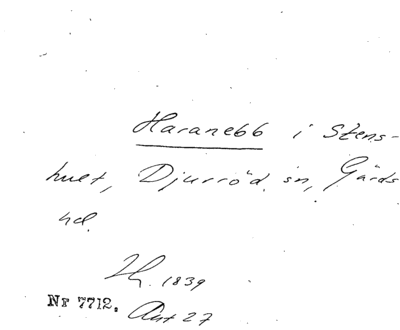 Haranebb i Stens-
hult, Djurröd sn, Gärds
hd.
1839
Nr 7712. Aut 27